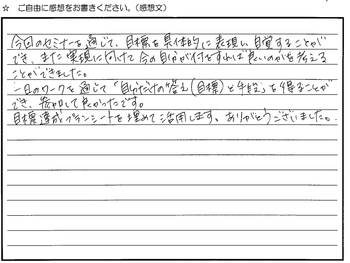 ☆ ご自由に感想をお書きください。（感想文）
今回のセミナーを通じて、目標を具体的に表現し自覚することが
でき、また実現に向けて今の自分が何をすれば良いのかを考える
ことができました。
一日のワークを通じて「自分だけの答え（目標）と手段」を得ることが
でき、参加して良かったです。
目標達成プランシートを埋めて活用します。ありがとうございました。